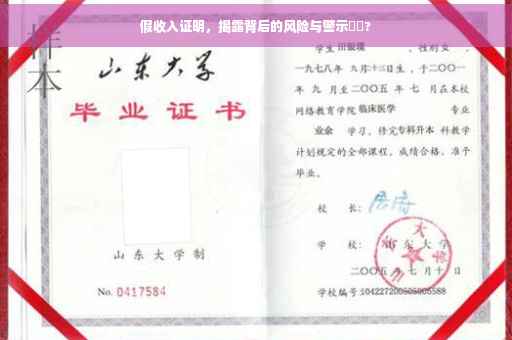 假收入证明，揭露背后的风险与警示▯▯?
样本
山东大学
毕业证书
山东大学制
No. 0417584
学生 性别女，
一九七八年 九月十二日生，于二〇〇一
年 九 月至二〇〇五 年 七 月在本校
网络教育学院临床医学 专业
业余 学习，修完专科升本 科教学
计划规定的全部课程，成绩合格，准予
毕业。
校 长：
学 校：山东大学
二〇〇五年 七月十日
学校编号:104227200505005588